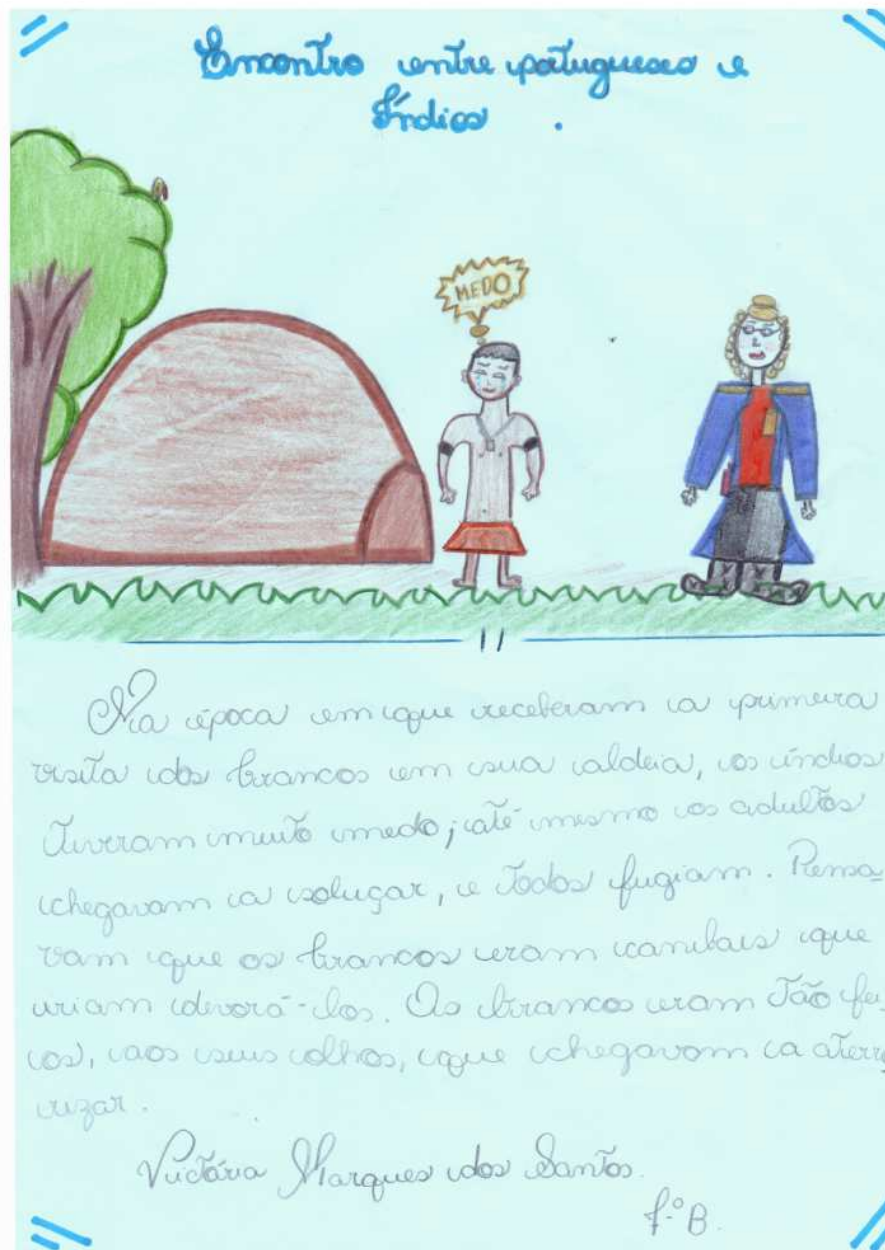 Encontro entre patugueses e
Índios .
MEDO
Na época em que receberam a primeira
visita dos brancos em sua aldeia, os índios
tiveram muito medo; até mesmo os adultos
chegavam a soluçar, e todos fugiam. Pensa=
vam que os brancos eram canibais que
iriam devorá-los. Os brancos eram tão fei
os, aos seus olhos, que chegavam a aterro
rizar.
Victória Marques dos Santos.
7.º B.